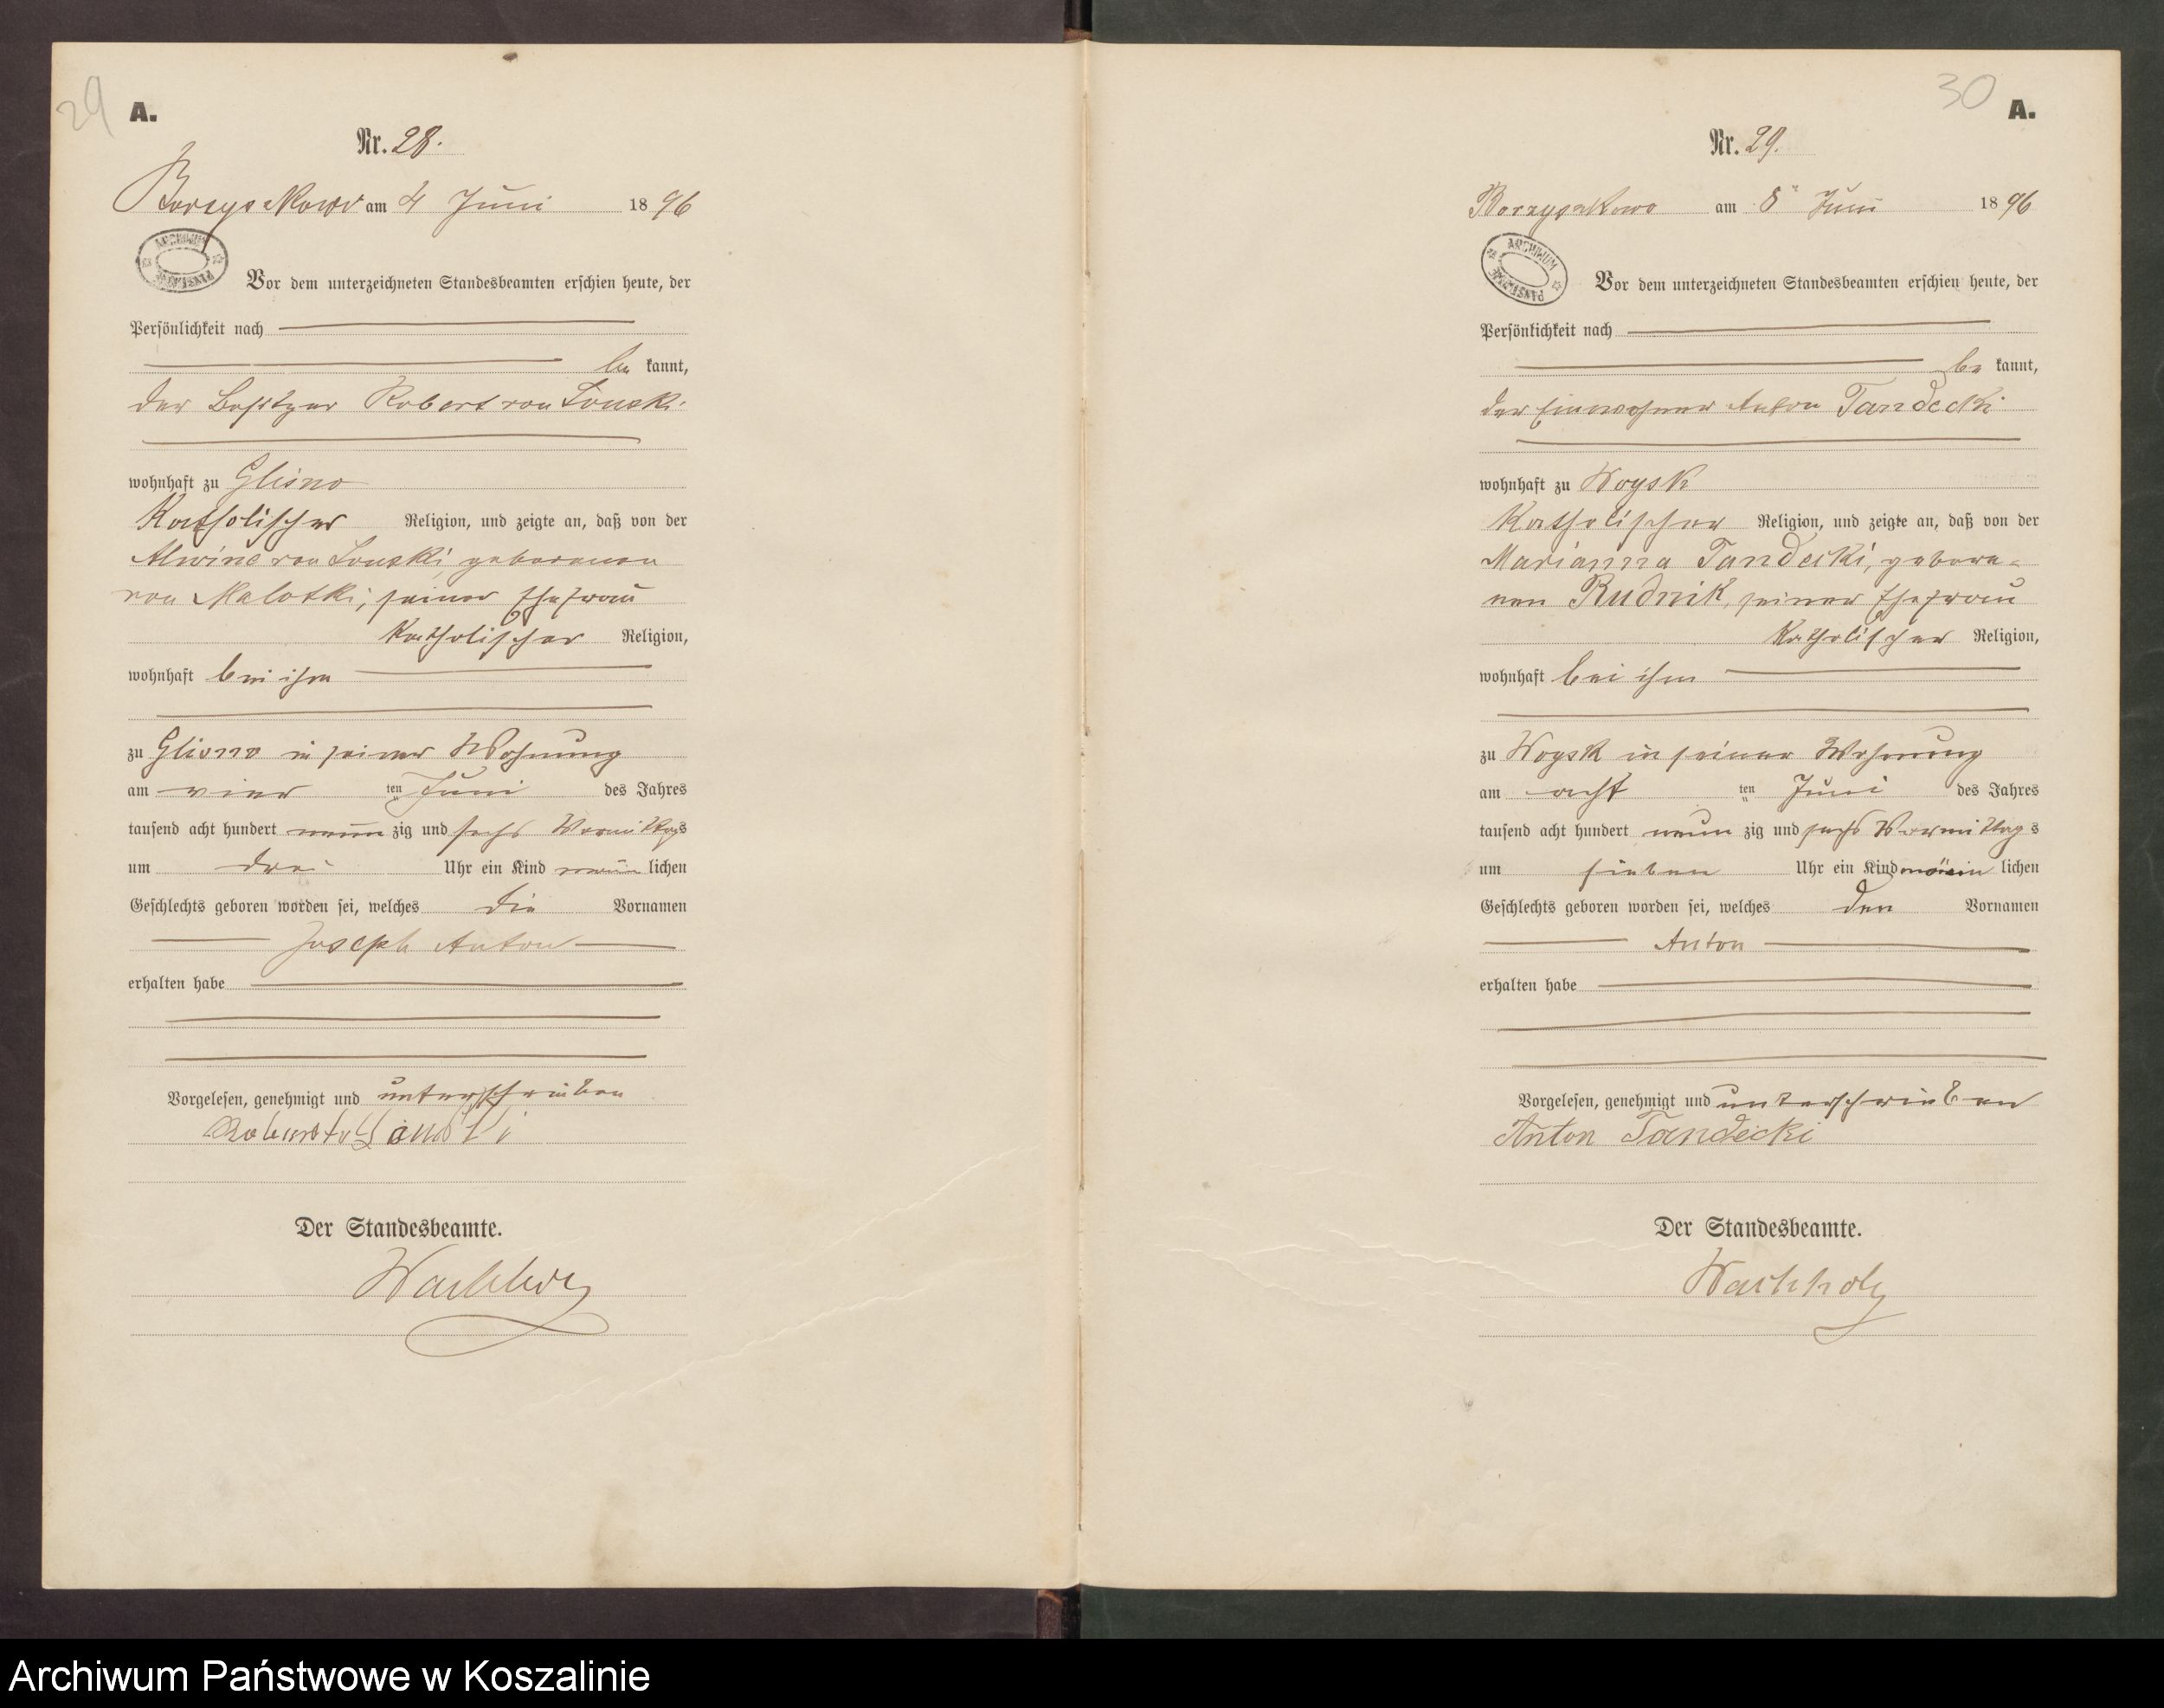 29
A.
Nr. 28.
Borzyszkowo am 4 Juni 1896
ARCHIWUM PAŃSTWOWE
Vor dem unterzeichneten Standesbeamten erschien heute, der
Persönlichkeit nach
be kannt,
der Besitzer Robert von
wohnhaft zu Glisno
Katholischer Religion, und zeigte an, daß von der
Alwine von geborenen
von Malotki, seiner Ehefrau
Katholischer Religion,
wohnhaft bei ihm
zu Glisno in seiner Wohnung
am vier ten Juni des Jahres
tausend acht hundert neun zig und sechs Vormittags
um drei Uhr ein Kind männ lichen
Geschlechts geboren worden sei, welches die Vornamen
Joseph Anton
erhalten habe
Vorgelesen, genehmigt und unterschrieben
Robert v
Der Standesbeamte.
Wachholz
30
A.
Nr. 29.
Borzyszkowo am 8ⁿ Juni 1896
ARCHIWUM PAŃSTWOWE
Vor dem unterzeichneten Standesbeamten erschien heute, der
Persönlichkeit nach
be kannt,
der Einwohner Anton Tandecki
wohnhaft zu Woysk
Katholischer Religion, und zeigte an, daß von der
Marianna Tandecki, gebore-
nen Rudnik, seiner Ehefrau
Katholischer Religion,
wohnhaft bei ihm
zu Woysk in seiner Wohnung
am acht ten Juni des Jahres
tausend acht hundert neun zig und sechs Vormittags
um sieben Uhr ein Kind männ lichen
Geschlechts geboren worden sei, welches den Vornamen
Anton
erhalten habe
Vorgelesen, genehmigt und unterschrieben
Anton Tandecki
Der Standesbeamte.
Wachholz
Archiwum Państwowe w Koszalinie